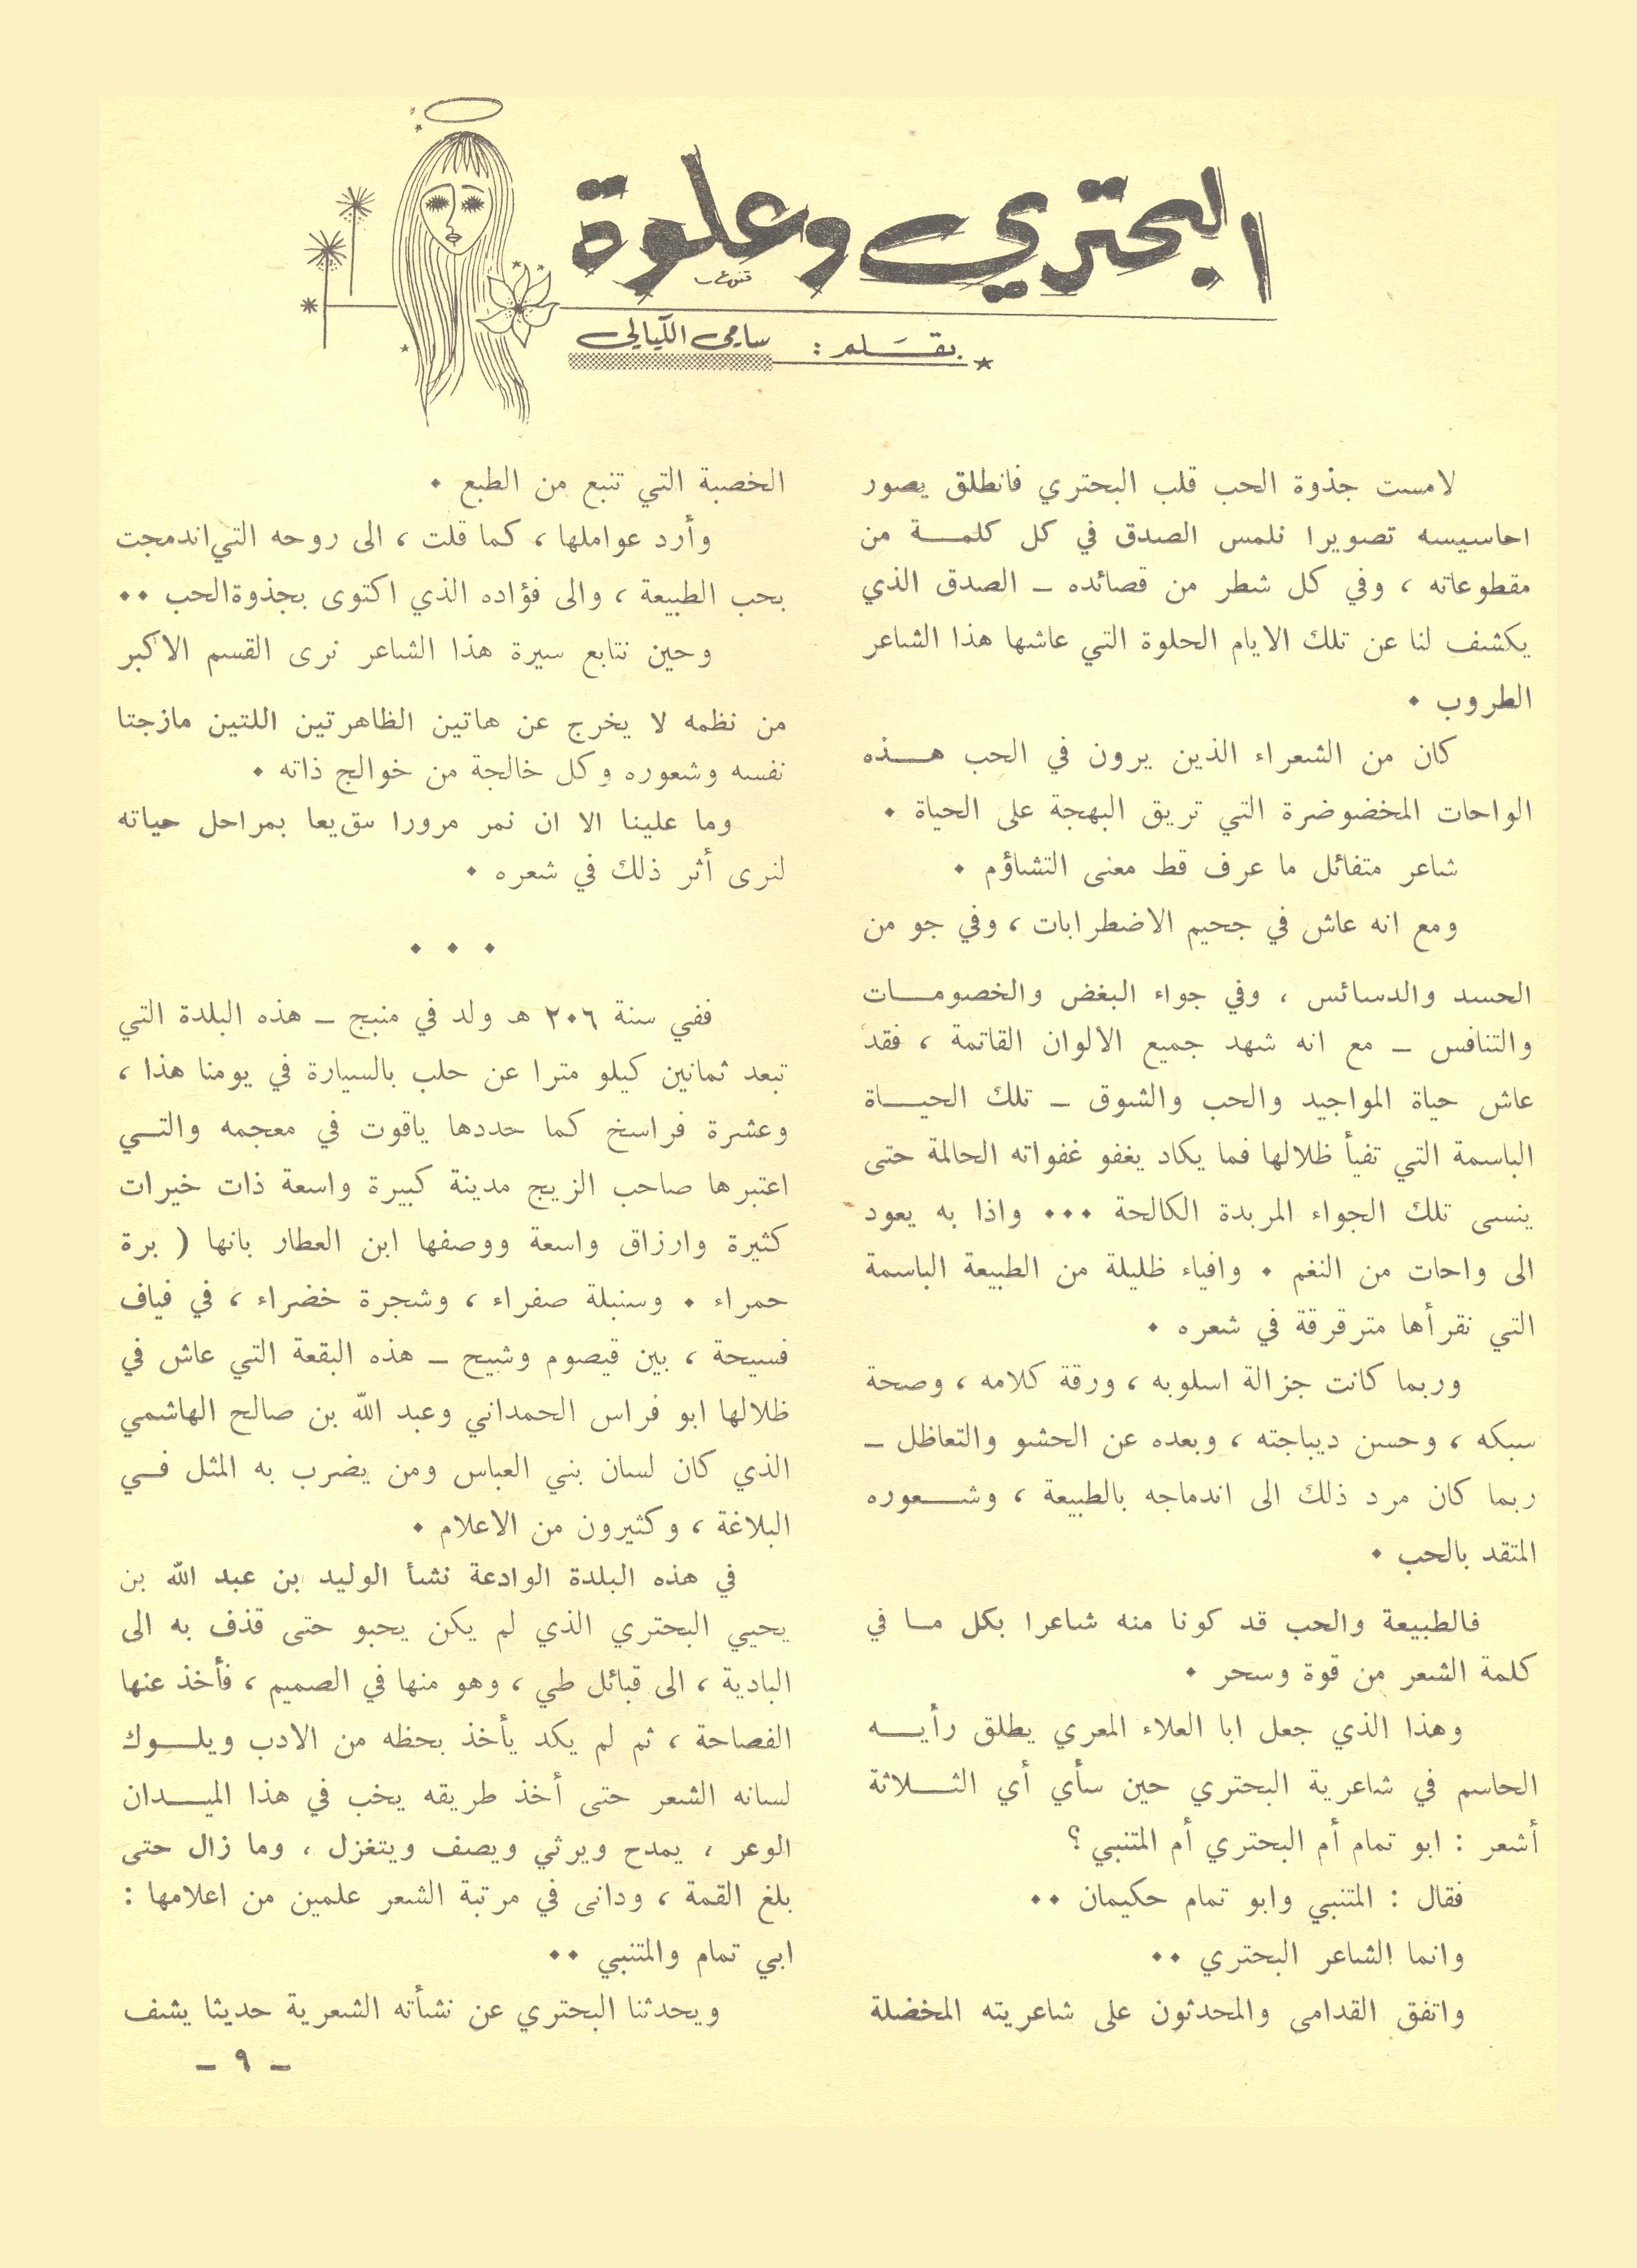 البحتري وعلوة
بقلم : سامي الكيالي
لامست جذوة الحب قلب البحتري فانطلق يصور
احاسيسه تصويرا نلمس الصدق في كل كلمة من
مقطوعاته ، وفي كل شطر من قصائده ـ الصدق الذي
يكشف لنا عن تلك الايام الحلوة التي عاشها هذا الشاعر
الطروب .
كان من الشعراء الذين يرون في الحب هذه
الواحات المخضوضرة التي تريق البهجة على الحياة .
شاعر متفائل ما عرف قط معنى التشاؤم .
ومع انه عاش في جحيم الاضطرابات ، وفي جو من
الحسد والدسائس ، وفي جواء البغض والخصومات
والتنافس ـ مع انه شهد جميع الالوان القاتمة ، فقد
عاش حياة المواجيد والحب والشوق ـ تلك الحياة
الباسمة التي تفيأ ظلالها فما يكاد يغفو غفواته الحالمة حتى
ينسى تلك الجواء المربدة الكالحة ... واذا به يعود
الى واحات من النغم . وافياء ظليلة من الطبيعة الباسمة
التي نقرأها مترقرقة في شعره .
وربما كانت جزالة اسلوبه ، ورقة كلامه ، وصحة
سبكه ، وحسن ديباجته ، وبعده عن الحشو والتعاظل ـ
ربما كان مرد ذلك الى اندماجه بالطبيعة ، وشعوره
المتقد بالحب .
فالطبيعة والحب قد كونا منه شاعرا بكل ما في
كلمة الشعر من قوة وسحر .
وهذا الذي جعل ابا العلاء المعري يطلق رأيه
الحاسم في شاعرية البحتري حين سأي أي الثلاثة
أشعر : ابو تمام أم البحتري أم المتنبي ؟
فقال : المتنبي وابو تمام حكيمان ..
وانما الشاعر البحتري ..
واتفق القدامى والمحدثون على شاعريته المخضلة
الخصبة التي تنبع من الطبع .
وأرد عواملها ، كما قلت ، الى روحه التي اندمجت
بحب الطبيعة ، والى فؤاده الذي اكتوى بجذوة الحب ..
وحين نتابع سيرة هذا الشاعر نرى القسم الاكبر
من نظمه لا يخرج عن هاتين الظاهرتين اللتين مازجتا
نفسه وشعوره وكل خالجة من خوالج ذاته .
وما علينا الا ان نمر مرورا سقيعا بمراحل حياته
لنرى أثر ذلك في شعره .
. . .
ففي سنة ٢٠٦ هـ ولد في منبج ـ هذه البلدة التي
تبعد ثمانين كيلو مترا عن حلب بالسيارة في يومنا هذا ،
وعشرة فراسخ كما حددها ياقوت في معجمه والتي
اعتبرها صاحب الزيج مدينة كبيرة واسعة ذات خيرات
كثيرة وارزاق واسعة ووصفها ابن العطار بانها ( برة
حمراء . وسنبلة صفراء ، وشجرة خضراء ، في فياف
فسيحة ، بين قيصوم وشيح ـ هذه البقعة التي عاش في
ظلالها ابو فراس الحمداني وعبد الله بن صالح الهاشمي
الذي كان لسان بني العباس ومن يضرب به المثل في
البلاغة ، وكثيرون من الاعلام .
في هذه البلدة الوادعة نشأ الوليد بن عبد الله بن
يحيي البحتري الذي لم يكن يحبو حتى قذف به الى
البادية ، الى قبائل طي ، وهو منها في الصميم ، فأخذ عنها
الفصاحة ، ثم لم يكد يأخذ بحظه من الادب ويلوك
لسانه الشعر حتى أخذ طريقه يخب في هذا الميدان
الوعر ، يمدح ويرثي ويصف ويتغزل ، وما زال حتى
بلغ القمة ، ودانى في مرتبة الشعر علمين من اعلامها :
ابي تمام والمتنبي ..
ويحدثنا البحتري عن نشأته الشعرية حديثا يشف
ـ ٩ ـ